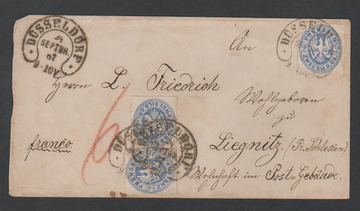 DÜSSELDORF
4
SEPTBR.
67
9-10V.
An
Herrn L. Friedrich
Wohlgeboren
zu
franco
Liegnitz (Pr. Schlesien)
Wohnhaft im Post-Gebäude.
DÜSSELDORF